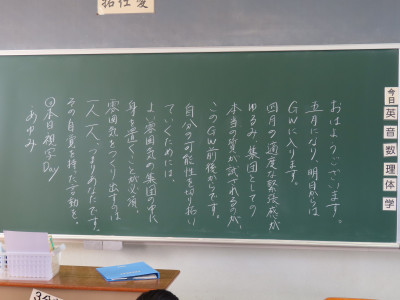 おはようございます。
五月になり、明日からは
GWに入ります。
四月の適度な緊張感が
ゆるみ、集団としての
本当の質が試されるのが、
このGW前後からです。
自分の可能性を切り拓い
ていくためには、
よい雰囲気の集団の中に
身を置くことが必須。
雰囲気をつくり出すのは
一人一人、つまりあなたです。
その自覚を持った言動を。
日本目視写Day
あゆみ
今日
英
音
数
理
体
学